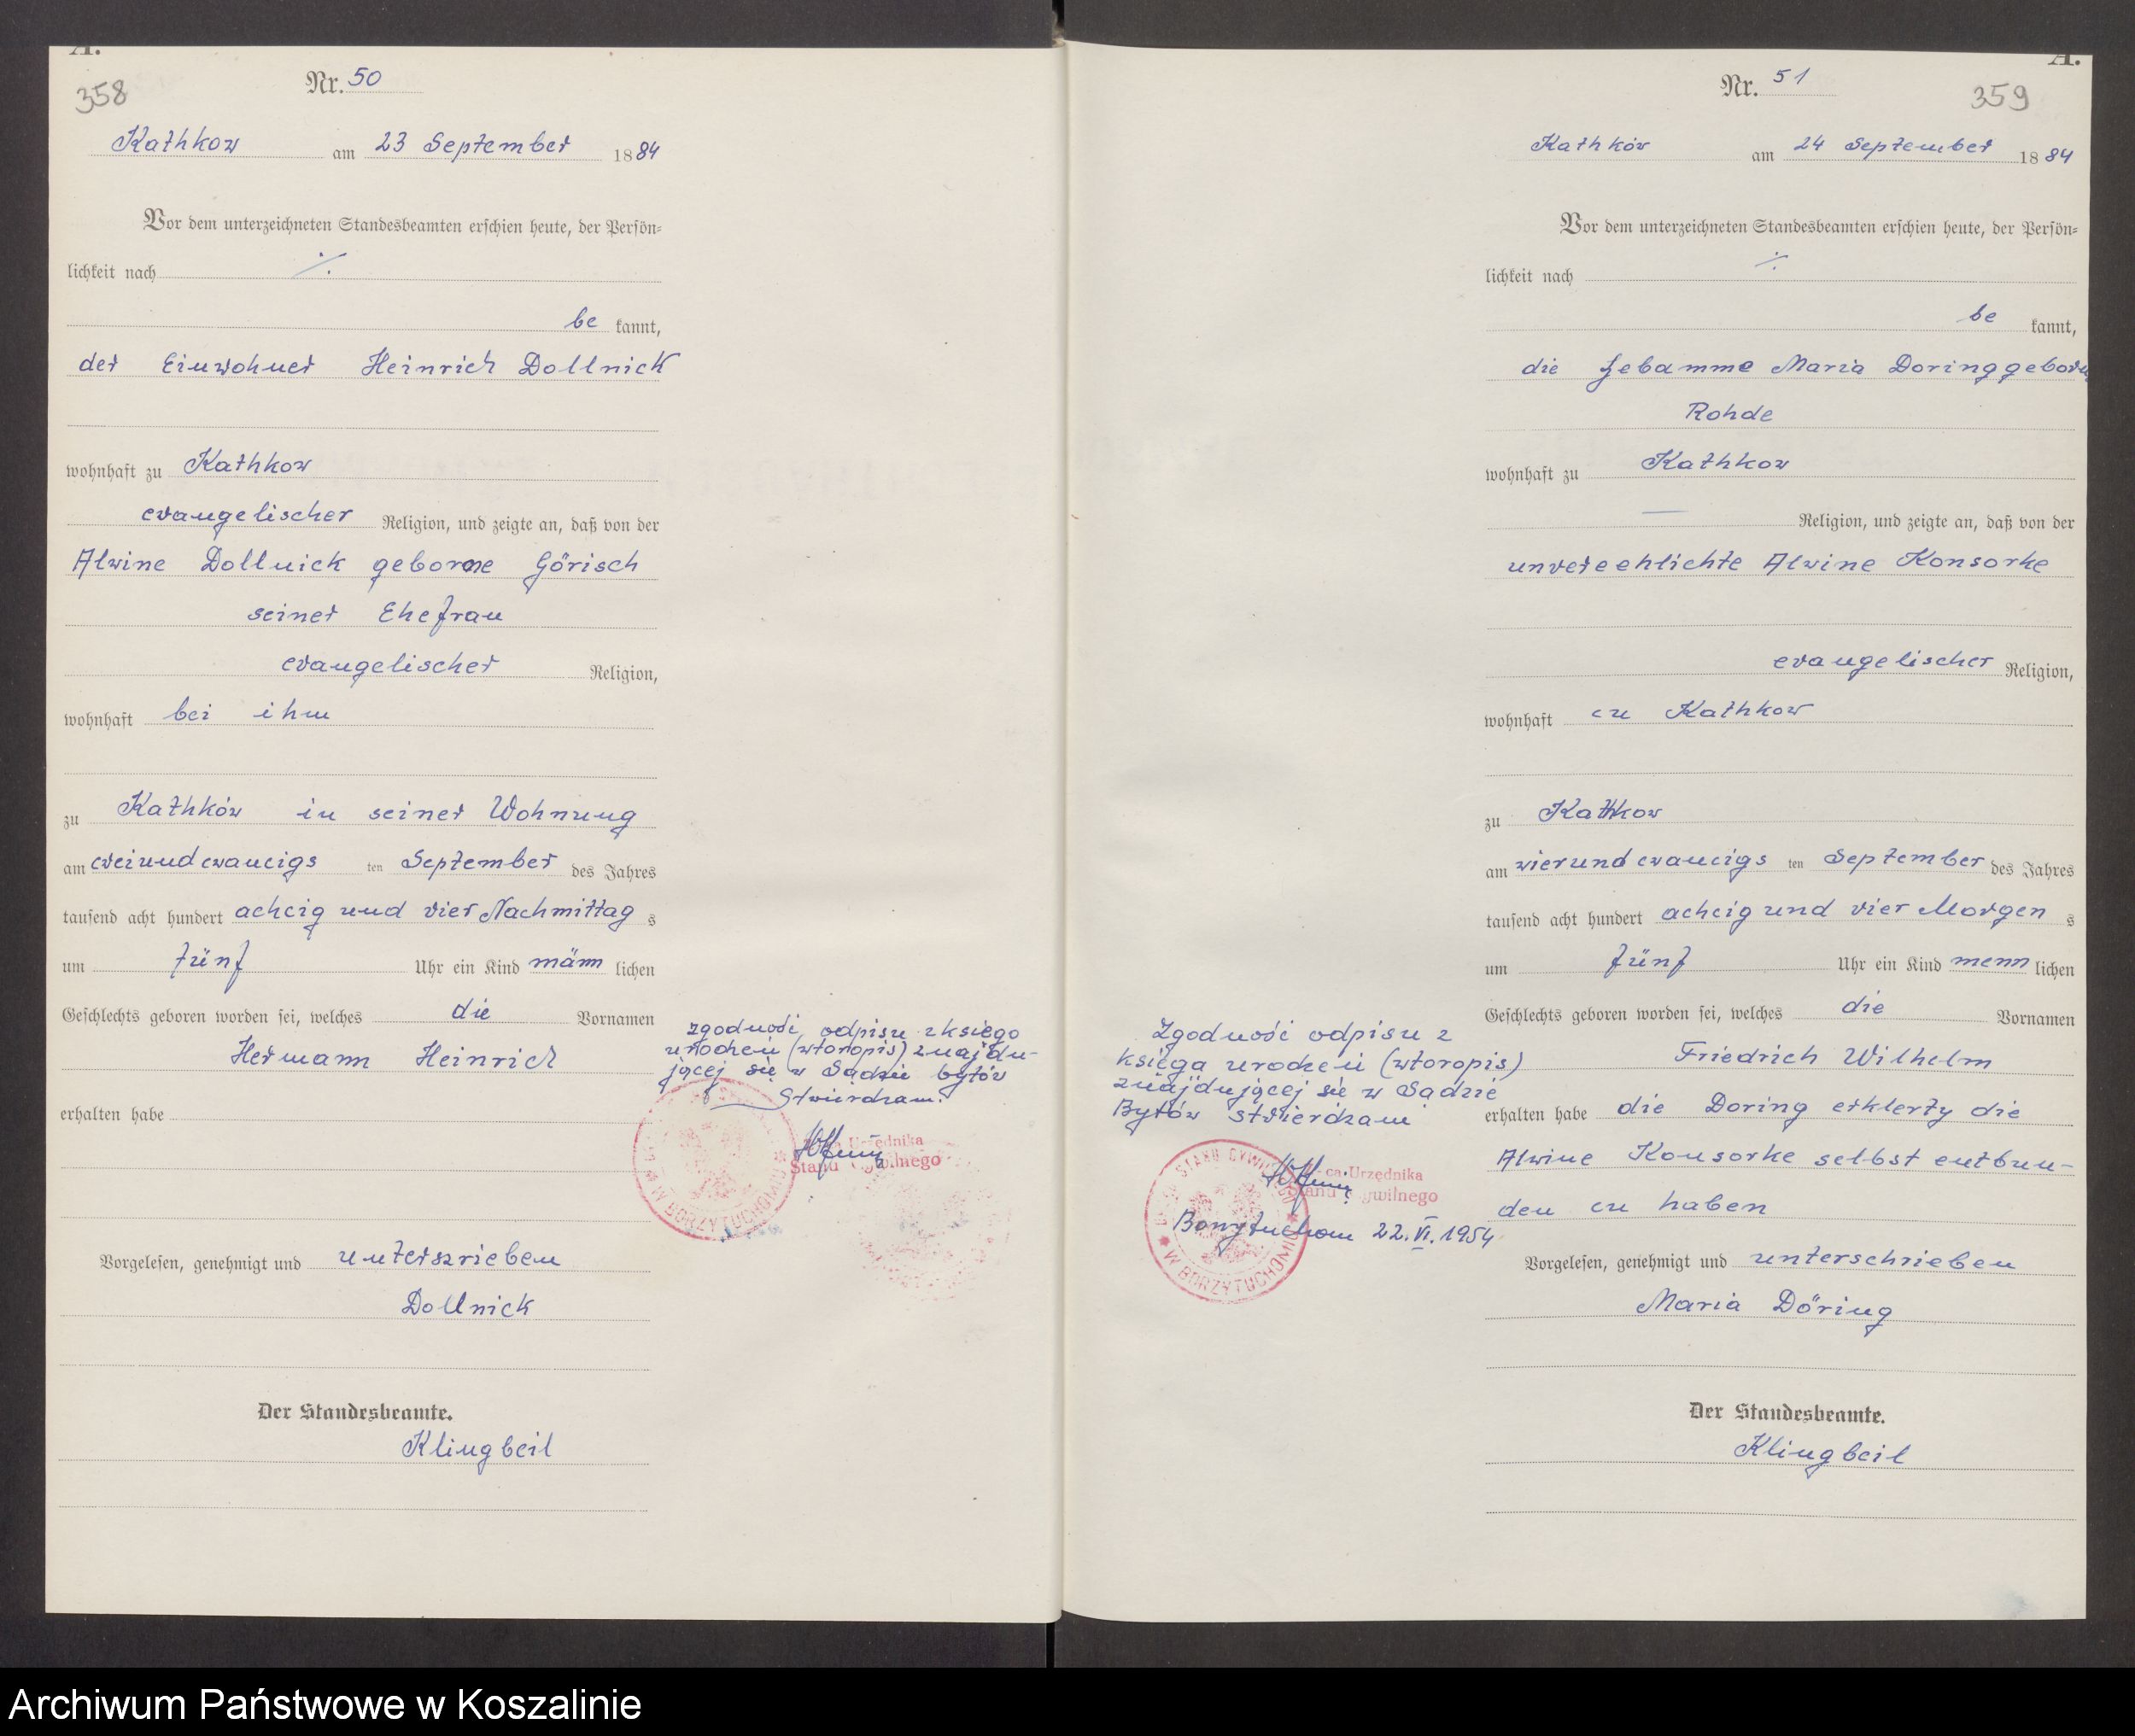 A.
358
Nr. 50
Kathkow am 23 September 1884
Vor dem unterzeichneten Standesbeamten erschien heute, der Persön-
lichkeit nach ./.
be kannt,
der Einwohner Heinrich Dollnick
wohnhaft zu Kathkow
evangelischer Religion, und zeigte an, daß von der
Alwine Dollnick geborne Görisch
seiner Ehefrau
evangelischer Religion,
wohnhaft bei ihm
zu Kathków in seiner Wohnung
am cweiundcwancigs ten September des Jahres
tausend acht hundert achcig und vier Nachmittag s
um fünf Uhr ein Kind männ lichen
Geschlechts geboren worden sei, welches die Vornamen
Hermann Heinrich
erhalten habe
Vorgelesen, genehmigt und unterszrieben
Dollnick
Der Standesbeamte.
Klingbeil
Zgodność odpisu z księgo
urodzeń (wtoropis) znajdu-
jącej się w Sądzie bytów
Stwierdzam.
Urzędnika
Stanu Cywilnego
W BORZYTUCHOMIU
A.
359
Nr. 51
Kathków am 24 September 1884
Vor dem unterzeichneten Standesbeamten erschien heute, der Persön-
lichkeit nach ./.
be kannt,
die Hebamme Maria Doring geboren
Rohde
wohnhaft zu Kathkow
— Religion, und zeigte an, daß von der
unvereehlichte Alwine Konsorke
evangelischer Religion,
wohnhaft cu Kathkow
zu Kathkow
am vierundcwancigs ten September des Jahres
tausend acht hundert achcig und vier Morgen s
um fünf Uhr ein Kind menn lichen
Geschlechts geboren worden sei, welches die Vornamen
Friedrich Wilhelm
erhalten habe die Doring erklerty die
Alwine Konsorke selbst entbun-
den cu haben
Vorgelesen, genehmigt und unterschrieben
Maria Döring
Der Standesbeamte.
Klingbeil
Zgodność odpisu z
księga urodzeń (wtoropis)
znajdującej się w Sądzie
Bytów stwierdzam
Z-ca Urzędnika
Stanu Cywilnego
Borzytuchom 22.VI.1954
URZĄD STANU CYWILNEGO W BORZYTUCHOMIU
Archiwum Państwowe w Koszalinie